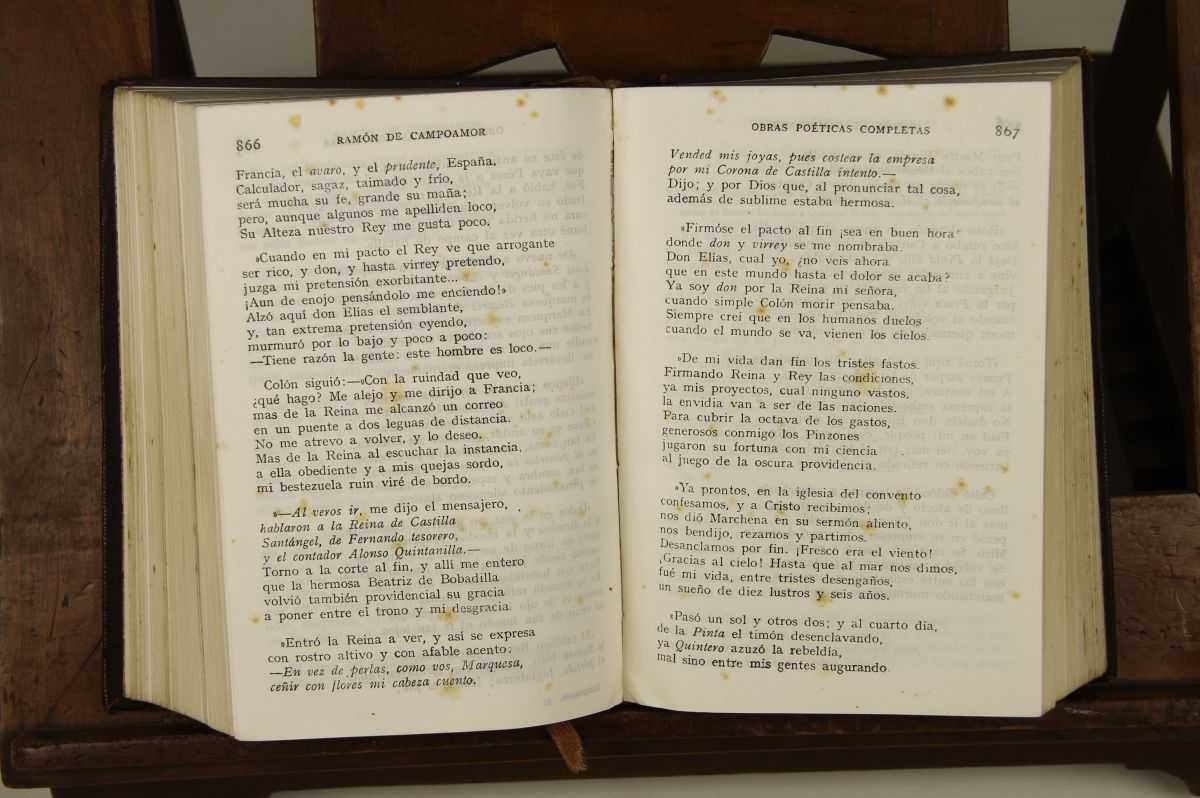 866
RAMÓN DE CAMPOAMOR
Francia, el avaro, y el prudente, España.
Calculador, sagaz, taimado y frío,
será mucha su fe, grande su maña;
pero, aunque algunos me apelliden loco,
Su Alteza nuestro Rey me gusta poco.
»Cuando en mi pacto el Rey ve que arrogante
ser rico, y don, y hasta virrey pretendo,
juzga mi pretensión exorbitante...
¡Aun de enojo pensándolo me enciendo!»
Alzó aquí don Elías el semblante,
y, tan extrema pretensión oyendo,
murmuró por lo bajo y poco a poco:
—Tiene razón la gente: este hombre es loco.—
Colón siguió:—«Con la ruindad que veo,
¿qué hago? Me alejo y me dirijo a Francia;
mas de la Reina me alcanzó un correo
en un puente a dos leguas de distancia.
No me atrevo a volver, y lo deseo.
Mas de la Reina al escuchar la instancia,
a ella obediente y a mis quejas sordo,
mi bestezuela ruin viré de bordo.
»—Al veros ir, me dijo el mensajero,
hablaron a la Reina de Castilla
Santángel, de Fernando tesorero,
y el contador Alonso Quintanilla.—
Torno a la corte al fin, y allí me entero
que la hermosa Beatriz de Bobadilla
volvió también providencial su gracia
a poner entre el trono y mi desgracia.
»Entró la Reina a ver, y así se expresa
con rostro altivo y con afable acento:
—En vez de perlas, como vos, Marquesa,
ceñir con flores mi cabeza cuento.
OBRAS POÉTICAS COMPLETAS
867
Vended mis joyas, pues costear la empresa
por mi Corona de Castilla intento.—
Dijo; y por Dios que, al pronunciar tal cosa,
además de sublime estaba hermosa.
»Firmóse el pacto al fin ¡sea en buen hora!
donde don y virrey se me nombraba.
Don Elías, cual yo, ¿no veis ahora
que en este mundo hasta el dolor se acaba?
Ya soy don por la Reina mi señora,
cuando simple Colón morir pensaba.
Siempre creí que en los humanos duelos
cuando el mundo se va, vienen los cielos.
»De mi vida dan fin los tristes fastos.
Firmando Reina y Rey las condiciones,
ya mis proyectos, cual ninguno vastos,
la envidia van a ser de las naciones.
Para cubrir la octava de los gastos,
generosos conmigo los Pinzones
jugaron su fortuna con mi ciencia
al juego de la oscura providencia.
»Ya prontos, en la iglesia del convento
confesamos, y a Cristo recibimos;
nos dió Marchena en su sermón aliento,
nos bendijo, rezamos y partimos.
Desanclamos por fin. ¡Fresco era el viento!
¡Gracias al cielo! Hasta que al mar nos dimos,
fué mi vida, entre tristes desengaños,
un sueño de diez lustros y seis años.
»Pasó un sol y otros dos; y al cuarto día,
de la Pinta el timón desenclavando,
ya Quintero azuzó la rebeldía,
mal sino entre mis gentes augurando.